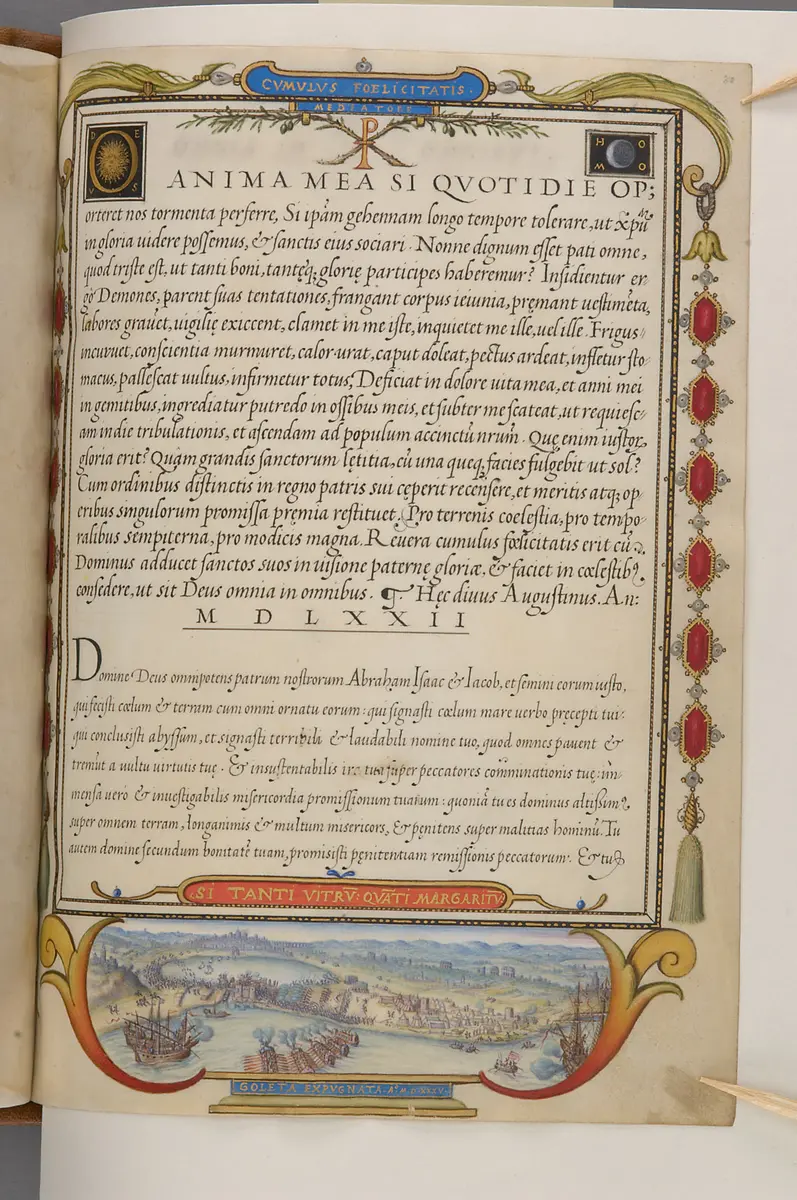 CVMVLVS FOELICITATIS.
MEDIATORE
DEVS
HOMO
ANIMA MEA SI QVOTIDIE OP;
orteret nos tormenta perferre, Si ipãm gehennam longo tempore tolerare, ut xp̃ũ
in gloria uidere possemus, & sanctis eius sociari. Nonne dignum esset pati omne,
quod triste est, ut tanti boni, tantęq; glorię participes haberemur? Insidientur er-
go Demones, parent suas tentationes, frangant corpus ieiunia, pręmant uestimẽta,
labores grauẽt, uigilię exiccent, clamet in me iste, inquietet me ille, uel ille. Frigus
incuruet, conscientia murmuret, calor urat, caput doleat, pectus ardeat, infletur sto-
macus, pallescat uultus, infirmetur totus, Deficiat in dolore uita mea, et anni mei
in gemitibus, ingrediatur putredo in ossibus meis, et subter me scateat, ut requiesc-
am in die tribulationis, et ascendam ad populum accinctũ nrum. Quę enim iustor
gloria erit? Quàm grandis sanctorum lętitia, cũ una queq; facies fulgebit ut sol?
Cum ordinibus distinctis in regno patris sui cęperit recensere, et meritis atq; op-
eribus singulorum promissa pręmia restituet, Pro terrenis coelestia, pro tempo-
ralibus sempiterna, pro modicis magna. Reuera cumulus foelicitatis erit cũ
Dominus adducet sanctos suos in uisione paternę gloriæ, & faciet in cœlestib9
consedere, ut sit Deus omnia in omnibus. ¶ Hęc diuus Augustinus. An:
M D L X X I I
Domine Deus omnipotens patrum nostrorum Abraham Isaac & Iacob, et semini eorum iusto,
qui fecisti cœlum & terram cum omni ornatu eorum: qui signasti cœlum mare uerbo pręcepti tui:
qui conclusisti abyssum, et signasti terribili & laudabili nomine tuo, quod omnes pauent &
tremũt a uultu uirtutis tuę. & insustentabilis ira tua super peccatores cõminationis tuę: im
mensa uero & inuestigabilis misericordia promissionum tuarum: quoniã tu es dominus altissim9
super omnem terram, longanimis & multum misericors, & pęnitens super malitias hominũ. Tu
autem domine secundum bonitatẽ tuam, promisisti pęnitentiam remissionis peccatorum. & tu
SI TANTI VITRV̄: QVĀTI MARGARITV̄
GOLETA EXPVGNATA. Aº. M.D.XXXV.